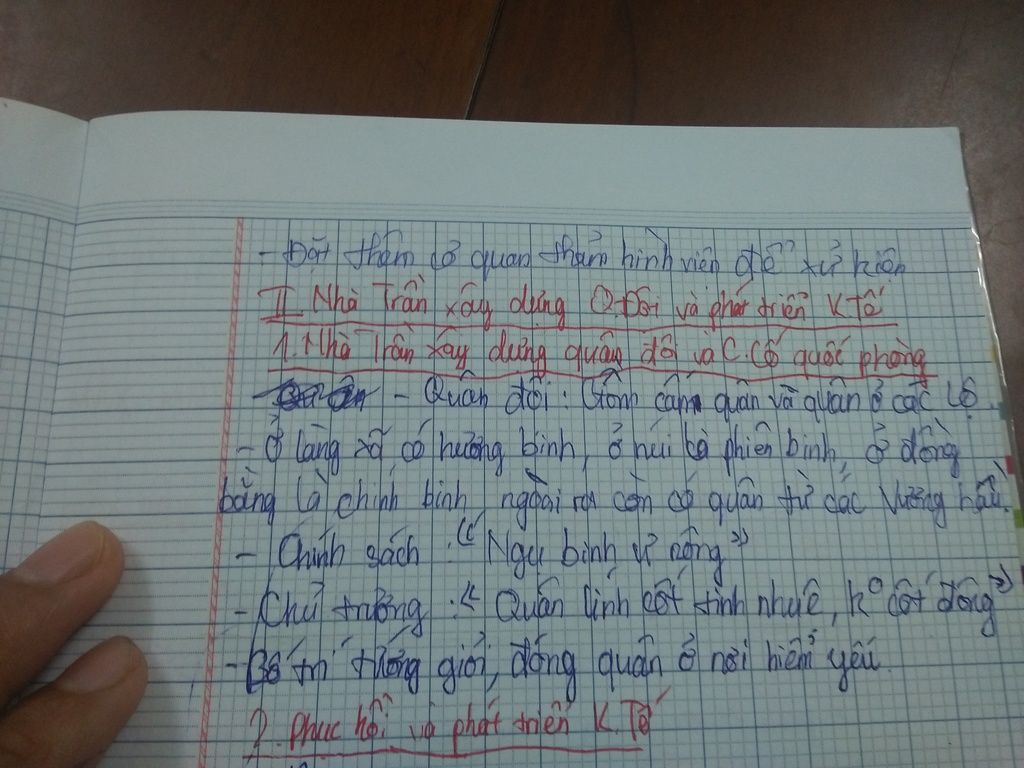 - Đặt thêm cơ quan thẩm hình viện để xử kiện
II. Nhà Trần xây dựng Q.Đội và phát triển K Tế
1. Nhà Trần xây dựng quân đội và C.Cố quốc phòng
- Quân đội: Gồm cấm quân và quân ở các lộ
- Ở làng xã có hương binh, ở núi là phiên binh, ở đồng
bằng là chính binh, ngoài ra còn có quân từ các Vương hầu.
- Chính sách : "Ngụ binh ư nông"
- Chủ trương : "Quân lính cốt tinh nhuệ, k° cốt đông"
- Bố trí tướng giỏi, đóng quân ở nơi hiểm yếu.
2. Phục hồi và phát triển K.Tế